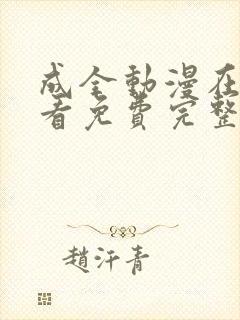 成全動漫在
看免費完整
趙汗青